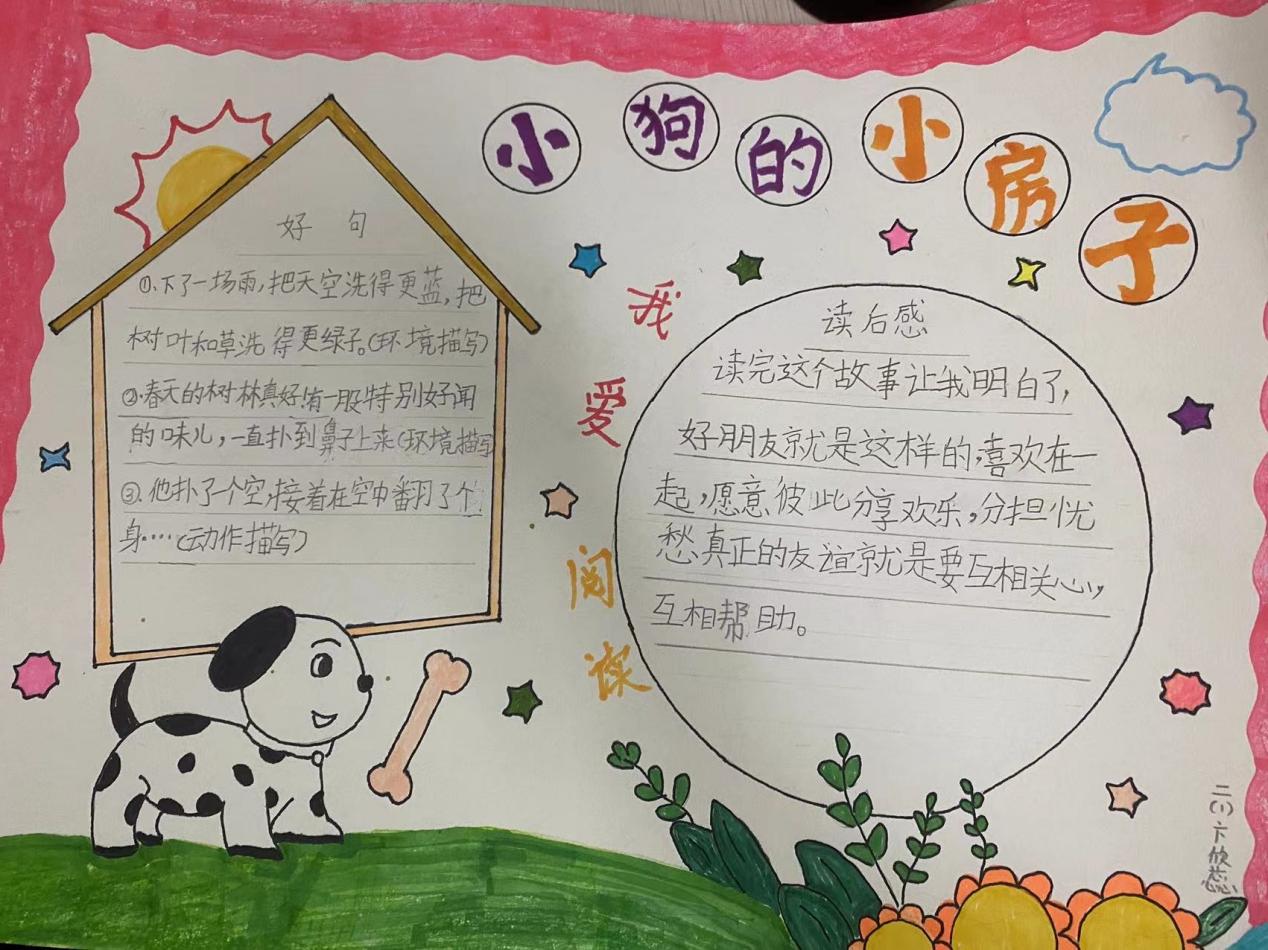 小狗的小房子
好句
①.下了一场雨,把天空洗得更蓝,把
树叶和草洗得更绿子。(环境描写)
②.春天的树林真好!有一股特别好闻
的味儿,一直扑到鼻子上来(环境描写
③.他扑了一个空,接着在空中翻了个
身····(动作描写)
我爱阅读
读后感
读完这个故事让我明白了,
好朋友就是这样的,喜欢在一
起,愿意彼此分享欢乐,分担忧
愁真正的友谊就是要互相关心,
互相帮助。
二(1)卞欣蕊